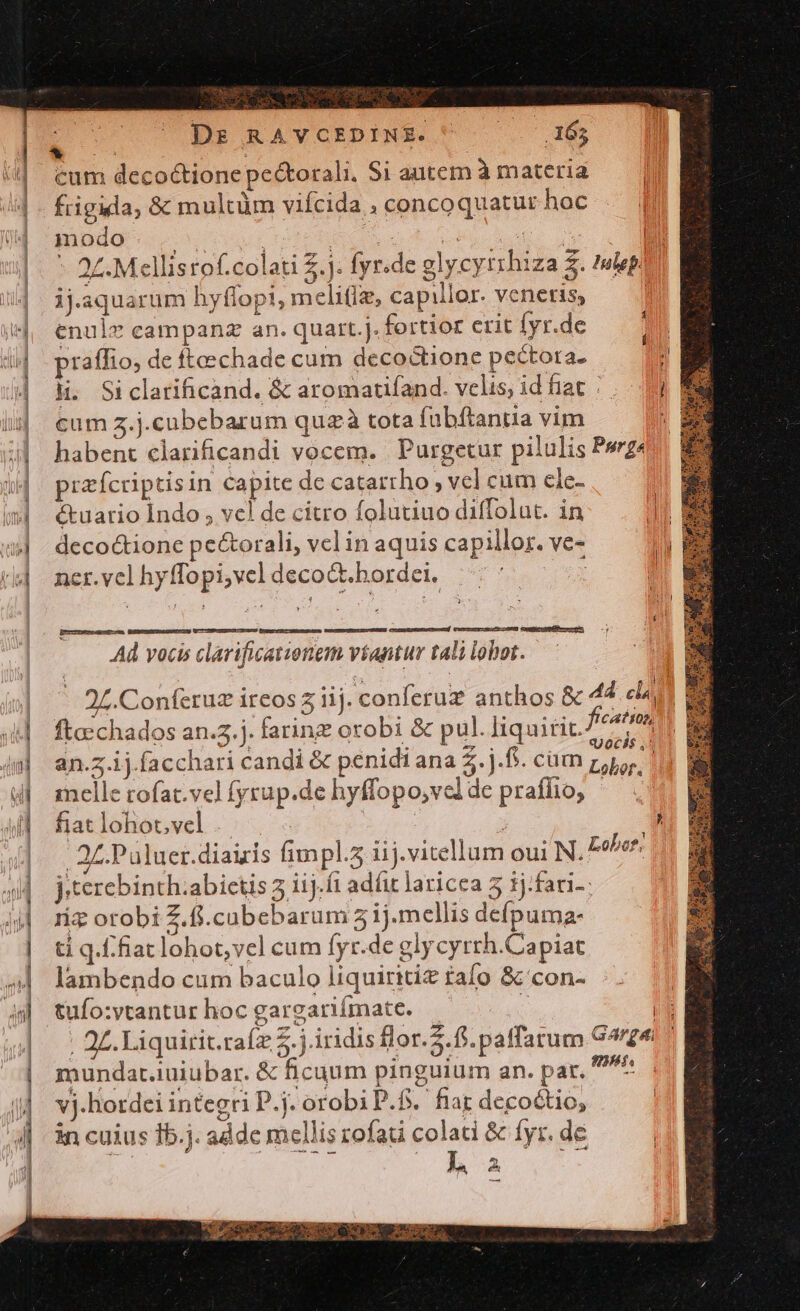 De RAVCEDINE. 163
cum decoctione pectorali. Si autem à materia
frigida, & multùm viſcida, concoquatur hoc
modo
℞.Mellis roſ.colati ℥.j. ſyr.de glycyrrhiza ℥. Iulep.
ij.aquarum hyſſopi, meliſſæ, capillor. veneris,
enulæ campanæ an. quart.j. fortior erit ſyr.de
praſſio, de ſtœchade cum decoctione pectora-
li. Si clarificand. & aromatiſand. velis, id fiat
cum ʒ.j.cubebarum quæ à tota ſubſtantia vim
habent clarificandi vocem. Purgetur pilulis Purga
præſcriptis in capite de catarrho, vel cum ele-
ctuario Indo, vel de citro ſolutiuo diſſolut. in
decoctione pectorali, vel in aquis capillor. ve-
ner.vel hyſſopi,vel decoct.hordei.
Ad vocis clarificationem vtantur tali lohot.
℞.Conſeruæ ireos ʒ iij. conſeruæ anthos & Ad cla
ſtœchados an.ʒ.j. farinæ orobi & pul. liquirit. fication,
an.ʒ.ij.ſacchari candi & penidi ana ℥.j.ß. cùm vocis,
melle roſat.vel ſyrup.de hyſſopo,vel de praſſio, Lohor.
fiat lohot,vel
℞.Puluer.diairis ſimpl.ʒ iij.vitellum oui N. Lohor.
j.terebinth.abietis ʒ iij.ſi adſit laricea ʒ ij.fari-
næ orobi ℥.ß.cubebarum ʒ ij.mellis deſpuma-
ti q.ſ.fiat lohot,vel cum ſyr.de glycyrrh.Capiat
lambendo cum baculo liquiritiæ raſo & con-
tuſo:vtantur hoc gargariſmate.
℞. Liquirit.raſæ ℥.j.iridis flor.℥.ß.paſſarum Garga
mundat.iuiubar. & ficuum pinguium an. par.
vj.hordei integri P.j. orobi P.ß. fiat decoctio,
in cuius lb.j. adde mellis roſati colati & ſyr. de
L 2